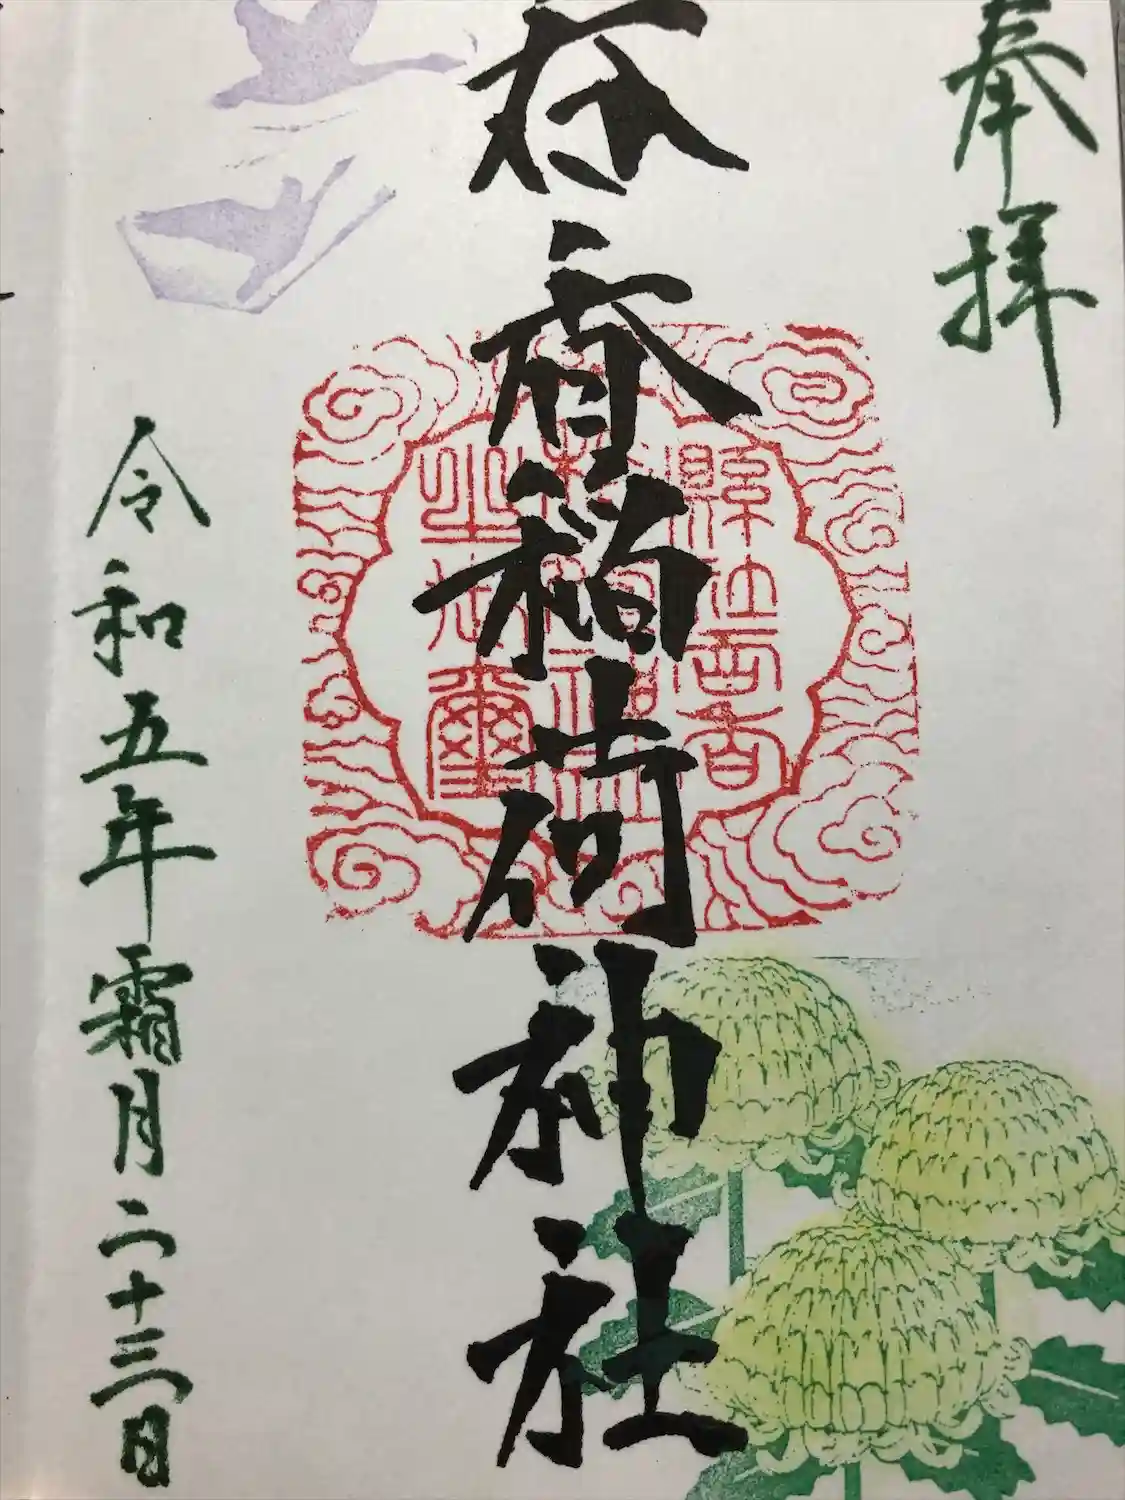 奉拝
香稲荷神社
令和五年霜月二十三日